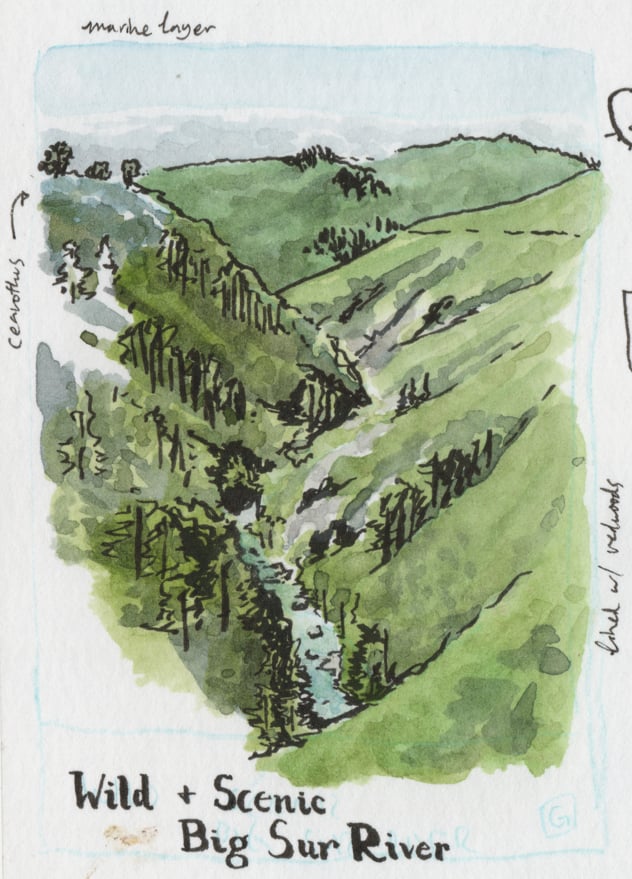 marine layer
ceanothus
lined w/ redwoods
Wild + Scenic
Big Sur River
G